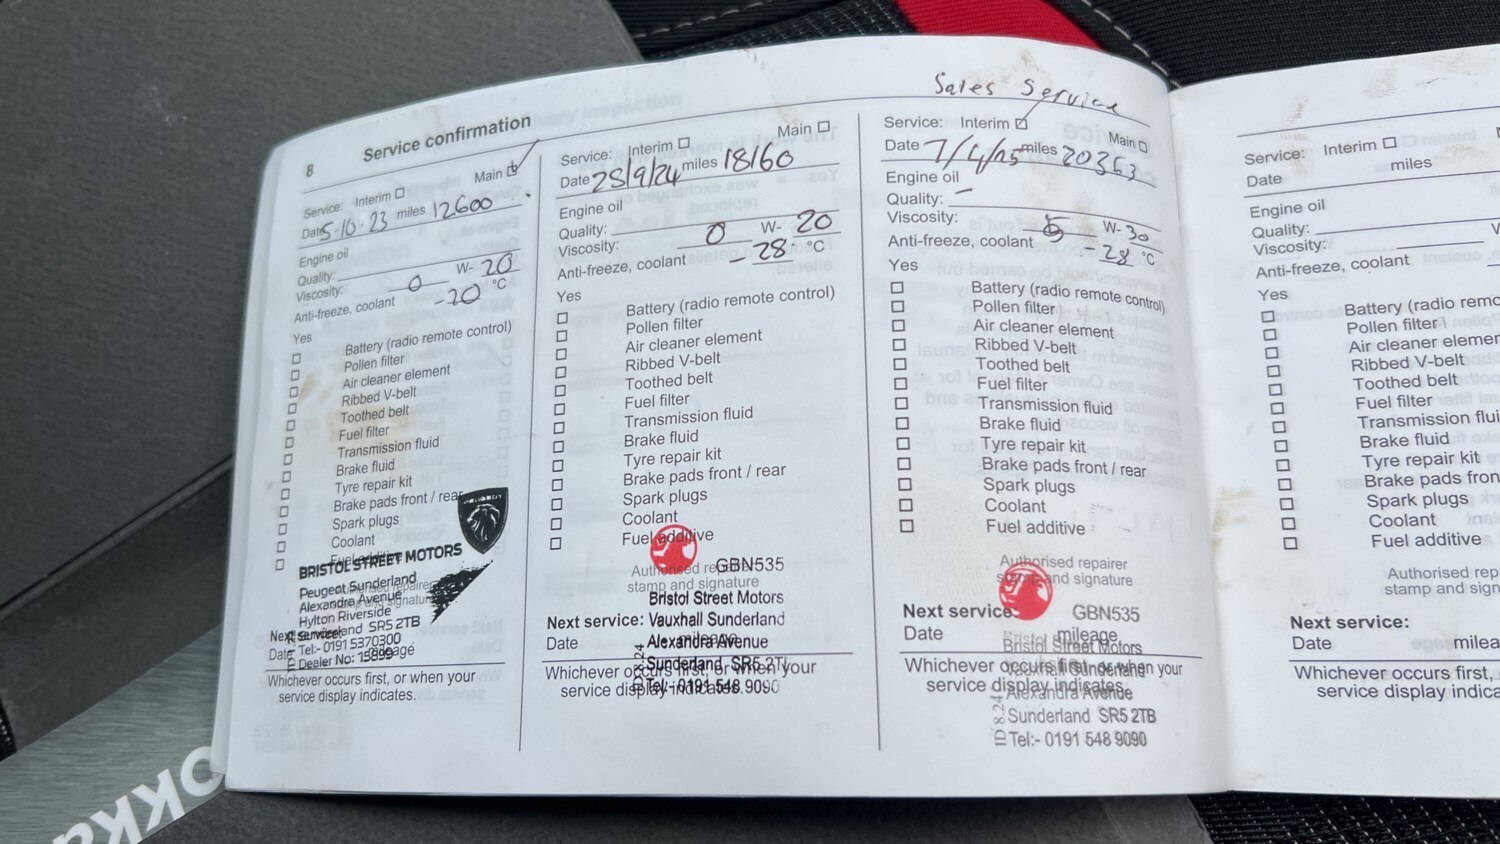 8 Service confirmation
Service: Interim Main
Date 5-10-23 miles 12600
Engine oil
Quality:
Viscosity: 0 W- 20
Anti-freeze, coolant -20 °C
Yes
Battery (radio remote control)
Pollen filter
Air cleaner element
Ribbed V-belt
Toothed belt
Fuel filter
Transmission fluid
Brake fluid
Tyre repair kit
Brake pads front / rear
Spark plugs
Coolant
Fuel additive
PEUGEOT
BRISTOL STREET MOTORS
Peugeot Sunderland
Alexandra Avenue
Hylton Riverside
Sunderland SR5 2TB
Tel:- 0191 5370300
Dealer No:
Authorised repairer
stamp and signature
Next service:
Date mileage
Whichever occurs first, or when your
service display indicates.
Service: Interim Main
Date 28/9/24 miles 18160
Engine oil
Quality:
Viscosity: 0 W- 20
Anti-freeze, coolant -28 °C
Yes
Battery (radio remote control)
Pollen filter
Air cleaner element
Ribbed V-belt
Toothed belt
Fuel filter
Transmission fluid
Brake fluid
Tyre repair kit
Brake pads front / rear
Spark plugs
Coolant
Fuel additive
Authorised repairer
stamp and signature
GBN535
Bristol Street Motors
Vauxhall Sunderland
Alexandra Avenue
Sunderland SR5 2TB
Tel:- 0191 548 9090
Next service:
Date mileage
Whichever occurs first, or when your
service display indicates.
Sales Service
Service: Interim Main
Date 7/4/25 miles 20363
Engine oil
Quality: -
Viscosity: 5 W- 30
Anti-freeze, coolant -28 °C
Yes
Battery (radio remote control)
Pollen filter
Air cleaner element
Ribbed V-belt
Toothed belt
Fuel filter
Transmission fluid
Brake fluid
Tyre repair kit
Brake pads front / rear
Spark plugs
Coolant
Fuel additive
Authorised repairer
stamp and signature
GBN535
Bristol Street Motors
Vauxhall Sunderland
Alexandra Avenue
Sunderland SR5 2TB
Tel:- 0191 548 9090
ID 8.24
Next service:
Date mileage
Whichever occurs first, or when your
service display indicates.
Service: Interim
Date miles
Engine oil
Quality:
Viscosity:
Anti-freeze, coolant
Yes
Battery (radio remo
Pollen filter
Air cleaner elemen
Ribbed V-belt
Toothed belt
Fuel filter
Transmission flui
Brake fluid
Tyre repair kit
Brake pads fron
Spark plugs
Coolant
Fuel additive
Authorised rep
stamp and sign
Next service:
Date milea
Whichever occurs first,
service display indica
OKKA